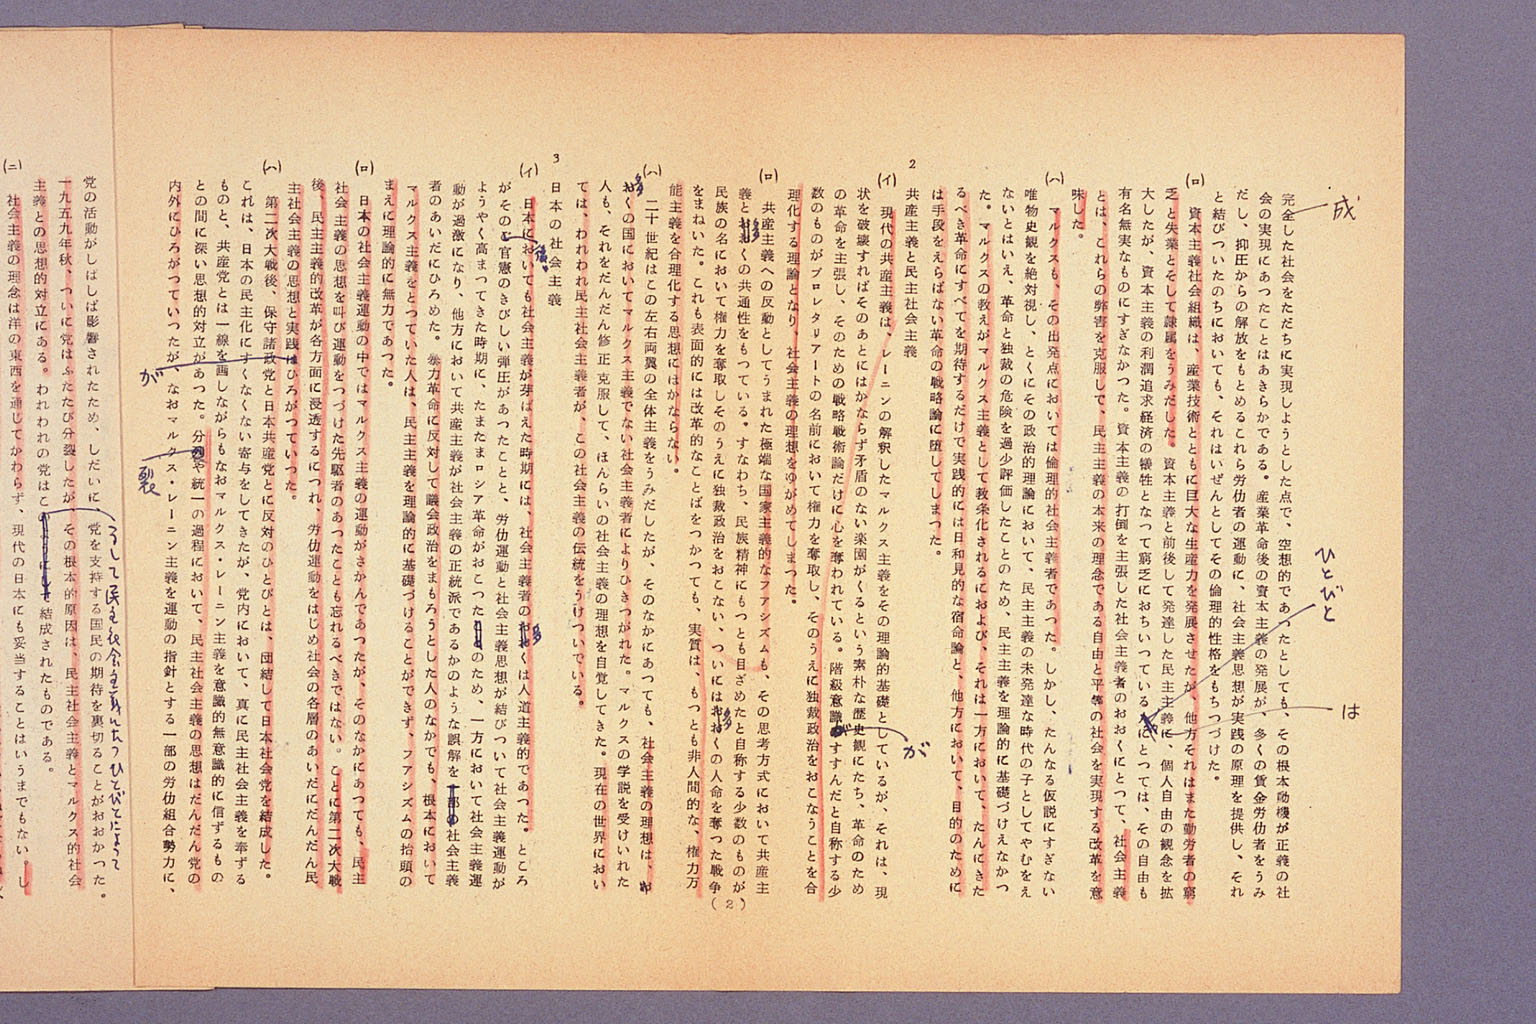 完全した社会をただちに実現しようとした点で、空想的であつたとしても、その根本動機が正義の社
会の実現にあつたことはあきらかである。産業革命後の資本主義の発展が、多くの賃金労仂者をうみ
だし、抑圧からの解放をもとめるこれら労仂者の運動に、社会主義思想が実践の原理を提供し、それ
と結びついたのちにおいても、それはいぜんとしてその倫理的性格をもちつづけた。
(ロ) 資本主義社会組織は、産業技術とともに巨大な生産力を発展させたが、他方それはまた勤労者の窮
乏と失業とそして隷属をうみだした。資本主義と前後して発達した民主主義に、個人自由の観念を拡
大したが、資本主義の利潤追求経済の犠牲となつて窮乏におちいつている にとつては、その自由も
有名無実なものにすぎなかつた。資本主義の打倒を主張した社会主義者のおおくにとつて、社会主義
とは、これらの弊害を克服して、民主主義の本来の理念である自由と平等の社会を実現する改革を意
味した。
(ハ) マルクスも、その出発点においては倫理的社会主義者であつた。しかし、たんなる仮説にすぎない
唯物史観を絶対視し、とくにその政治的理論において、民主主義の未発達な時代の子としてやむをえ
ないとはいえ、革命と独裁の危険を過少評価したことのため、民主主義を理論的に基礎づけえなかつ
た。マルクスの教えがマルクス主義として教条化されるにおよび、それは一方において、たんにきた
るべき革命にすべてを期待するだけで実践的には日和見的な宿命論と、他方において、目的のために
は手段をえらばない革命の戦略論に堕してしまつた。
2 共産主義と民主社会主義
(イ) 現代の共産主義は、レーニンの解釈したマルクス主義をその理論的基礎としているが、それは、現
状を破壊すればそのあとにはかならず矛盾のない楽園がくるという素朴な歴史観にたち、革命のため
の革命を主張し、そのための戦略戦術論だけに心を奪われている。階級意識 すすんだと自称する少
数のものがプロレタリアートの名前において権力を奪取し、そのうえに独裁政治をおこなうことを合
理化する理論となり、社会主義の理想をゆがめてしまつた。
(ロ) 共産主義への反動としてうまれた極端な国家主義的なファシズムも、その思考方式において共産主
義とおおくの共通性をもつている。すなわち、民族精神にもつとも目ざめたと自称する少数のものが
民族の名において権力を奪取しそのうえに独裁政治をおこない、ついにはおおくの人命を奪つた戦争
をまねいた。これも表面的には改革的なことばをつかつても、実質は、もつとも非人間的な、権力万
能主義を合理化する思想にほかならない。
(ハ) 二十世紀はこの左右両翼の全体主義をうみだしたが、そのなかにあつても、社会主義の理想は、お
おくの国においてマルクス主義でない社会主義者によりひきつがれた。マルクスの学説を受けいれた
人も、それをだんだん修正克服して、ほんらいの社会主義の理想を自覚してきた。現在の世界におい
ては、われわれ民主社会主義者が、この社会主義の伝統をうけついでいる。
3 日本の社会主義
(イ) 日本においても社会主義が芽ばえた時期には、社会主義者のおおくは人道主義的であつた。ところ
がそのご官憲のきびしい弾圧があつたことと、労仂運動と社会主義思想が結びついて社会主義運動が
ようやく高まつてきた時期に、たまたまロシア革命がおこつた のため、一方において社会主義運
動が過激になり、他方において共産主義が社会主義の正統派であるかのような誤解を一部の社会主義
者のあいだにひろめた。暴力革命に反対して議会政治をまもろうとした人のなかでも、根本において
マルクス主義をとつていた人は、民主主義を理論的に基礎づけることができず、ファシズムの抬頭の
まえに理論的に無力であつた。
(ロ) 日本の社会主義運動の中ではマルクス主義の運動がさかんであつたが、そのなかにあつても、民主
社会主義の思想を叫び運動をつづけた先駆者のあつたことも忘れるべきではない。ことに第二次大戦
後、民主主義的改革が各方面に浸透するにつれ、労仂運動をはじめ社会の各層のあいだにだんだん民
主社会主義の思想と実践はひろがつていつた。
(ハ) 第二次大戦後、保守諸政党と日本共産党とに反対のひとびとは、団結して日本社会党を結成した。
これは、日本の民主化にすくなくない寄与をしてきたが、党内において、真に民主社会主義を奉ずる
ものと、共産党とは一線を画しながらもなおマルクス・レーニン主義を意識的無意識的に信ずるもの
との間に深い思想的対立があつた。分列や統一の過程において、民主社会主義の思想はだんだん党の
内外にひろがつていつたが、なおマルクス・レーニン主義を運動の指針とする一部の労仂組合勢力に、
党の活動がしばしば影響されたため、しだいに 党を支持する国民の期待を裏切ることがおおかつた。
一九五九年秋、ついに党はふたたび分裂したが、その根本的原因は、民主社会主義とマルクス的社会
主義との思想的対立にある。われわれの党はこ 結成されたものである。
(ニ) 社会主義の理念は洋の東西を通じてかわらず、現代の日本にも妥当することはいうまでもない。し
(2)
成
ひとびと
は
が
多
多
多
後
多
が
裂
うして民主社会主義にたつひとびとによつて